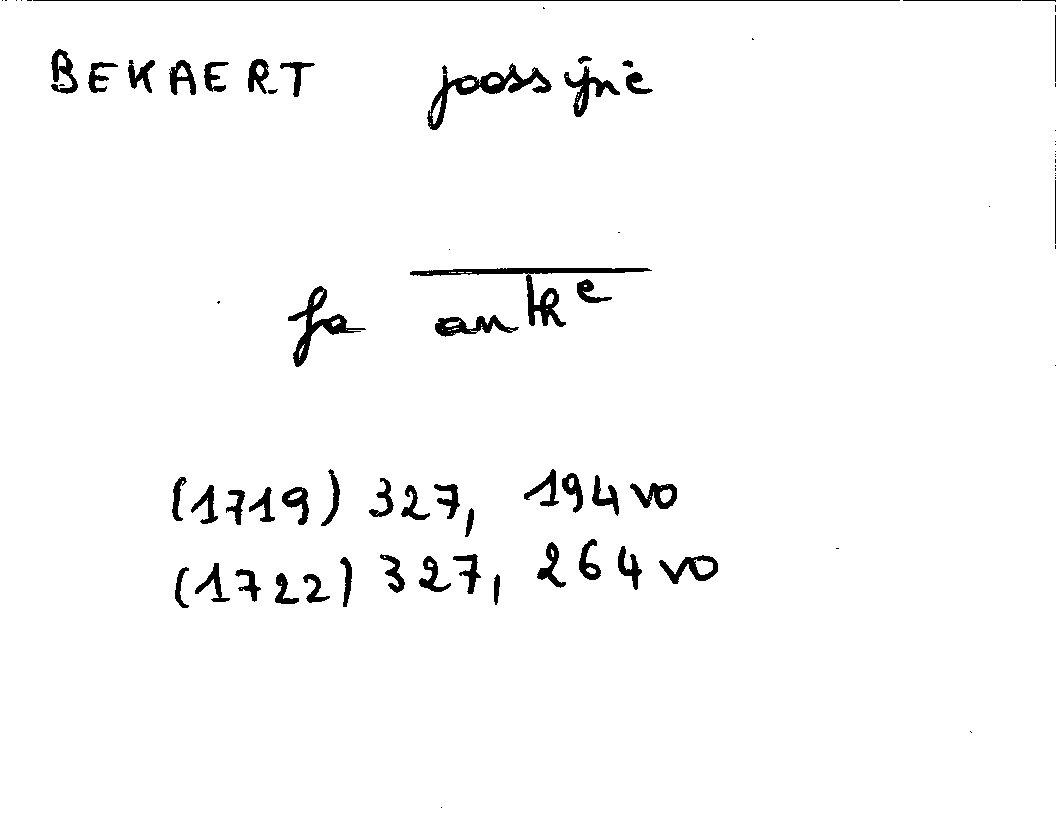 BEKAERT joossijne
fa anthe
(1719) 327, 194 vo
(1722) 327, 264 vo